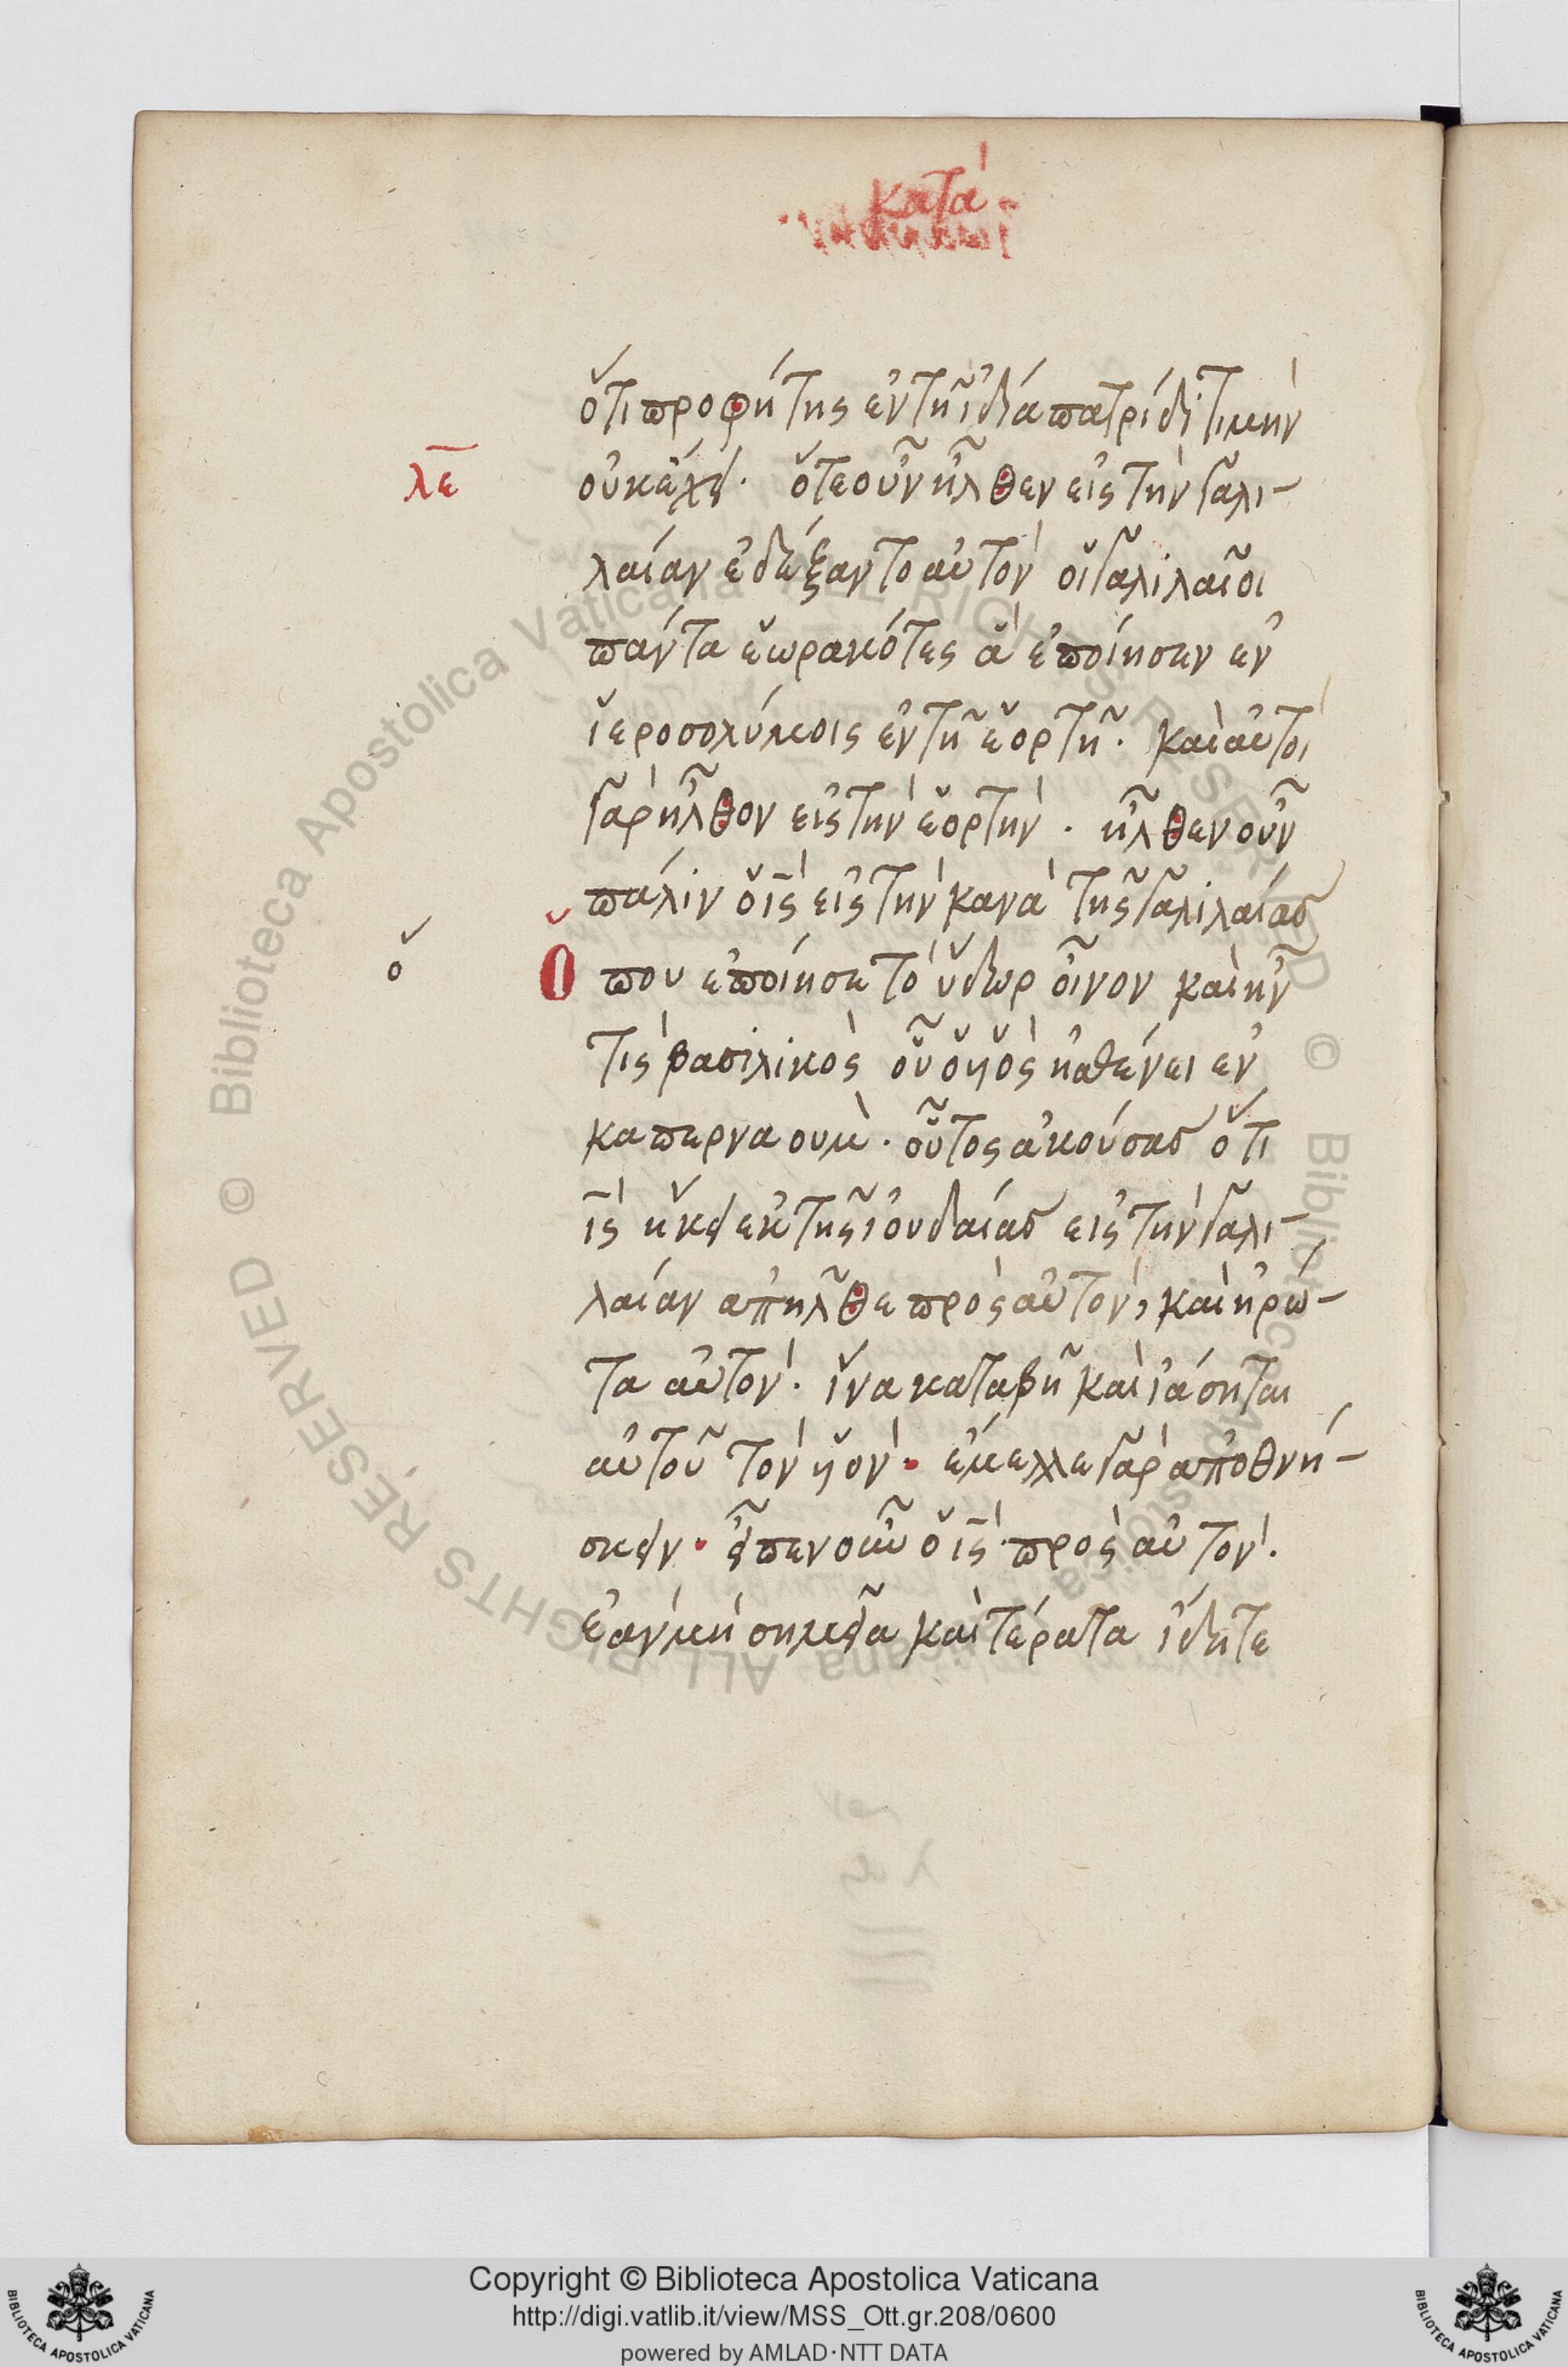 κατὰ
ὅτι προφήτης ἐν τῆ ἰδία πατρίδι τιμὴν
λε οὐκ ἔχει. ὅτε οὖν ἦλθεν εἰς τὴν γαλι-
λαίαν ἐδέξαντο αὐτὸν οἱ γαλιλαῖοι
πάντα ἑωρακότες ἃ ἐποίησεν ἐν
ἱεροσολύμοις ἐν τῆ ἑορτῆ. καὶ αὐτοὶ
γὰρ ἦλθον εἰς τὴν ἑορτήν. ἦλθεν οὖν
πάλιν ὁ ις εἰς τὴν κανὰ τῆς γαλιλαίας
ὅ
Ὅπου ἐποίησε τὸ ὕδωρ οἶνον καὶ ἦν
τις βασιλικὸς οὗ ὁ υἱὸς ἠσθένει ἐν
καπερναουμ. οὗτος ἀκούσας ὅτι
ις ἥκει ἐκ τῆς ἰουδαίας εἰς τὴν γαλι-
λαίαν ἀπῆλθε πρὸς αὐτόν, καὶ ἠρώ-
τα αὐτὸν. ἵνα καταβῆ καὶ ἰάσηται
αὐτοῦ τὸν υἱὸν. ἔμελλε γὰρ ἀποθνή-
σκειν. εἶπεν οὖν ὁ ις πρὸς αὐτὸν.
ἐὰν μὴ σημεῖα καὶ τέρατα ἴδητε
Copyright © Biblioteca Apostolica Vaticana
http://digi.vatlib.it/view/MSS_Ott.gr.208/0600
powered by AMLAD·NTT DATA
BIBLIOTECA APOSTOLICA VATICANA
BIBLIOTECA APOSTOLICA VATICANA
© Biblioteca Apostolica Vaticana ALL RIGHTS RESERVED © Biblioteca Apostolica Vaticana ALL RIGHTS RESERVED